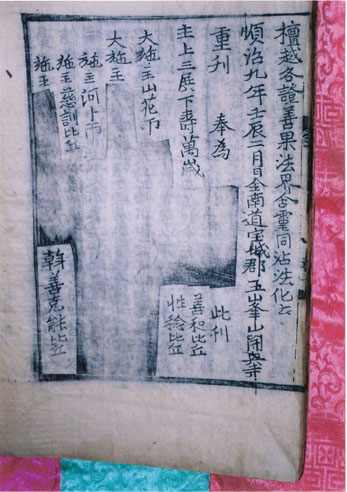 檀越各證善果法界含霊同沾法化云
順治九年壬辰二月日全南道宝城郡五峯山開興寺
重刊 奉為 此刊
主上三殿下壽萬歲 善和比丘
大施主山花 性稔比丘
大施主
施主河上
施主慈訓比丘 幹善克能比丘